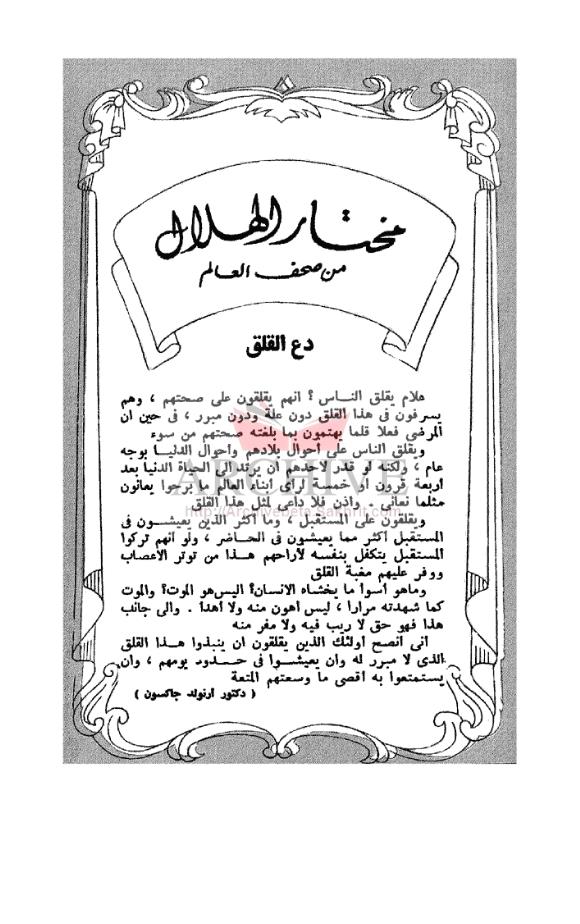 مختار الهلال
من صحف العالم
دع القلق
علام يقلق النـاس ؟ انهم يقلقون على صحتهم ، وهم
يسرفون فى هذا القلق دون علة ودون مبرر ، فى حين ان
المرضى فعلا قلما يهتمون بما بلغته صحتهم من سوء
ويقلق الناس على أحوال بلادهم وأحوال الدنيـا بوجه
عام ، ولكنه لو قدر لاحدهم أن يرتد الى الحياة الدنيا بعد
اربعة قرون أو خمسة لرأى أبناء العالم ما برحوا يعانون
مثلما نعانى . واذن فلا داعى لمثل هذا القلق
ARCHIVE
ويقلقون على المستقبل ، وما أكثر الذين يعيشـون فى
المستقبل أكثر مما يعيشون فى الحاضر ، ولو أنهم تركوا
المستقبل يتكفل بنفسه لأراحهم هـذا من توتر الأعصاب
ووفر عليهم مغبة القلق
وماهو أسوأ ما يخشاه الانسان؟ أليس هو الموت؟ والموت
كما شهدته مرارا ، ليس أهون منه ولا أهدأ . والى جانب
هذا فهو حق لا ريب فيه ولا مفر منه
انى أنصح أولئك الذين يقلقون ان ينبذوا هـذا القلق
الذى لا مبرر له وان يعيشـوا فى حـدود يومهم ، وأن
يستمتعوا به أقصى ما وسعتهم المتعة
( دكتور أرنولد جاكسون )